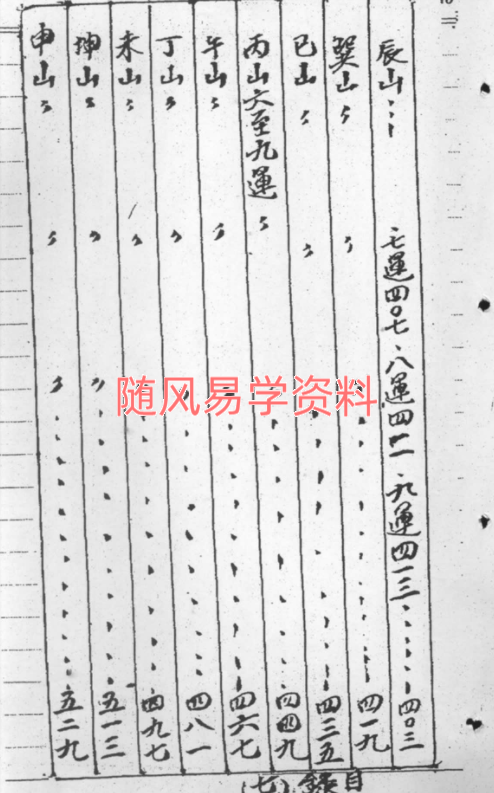 辰山……七運四〇七、八運四一一、九運四一三……四〇三
巽山〃〃……四一九
巳山〃〃……四三五
丙山六至九運〃……四四九
午山〃〃……四六七
丁山〃〃……四八一
未山〃〃……四九七
坤山〃〃……五一三
申山〃〃……五二九
目錄(七)
随风易学资料